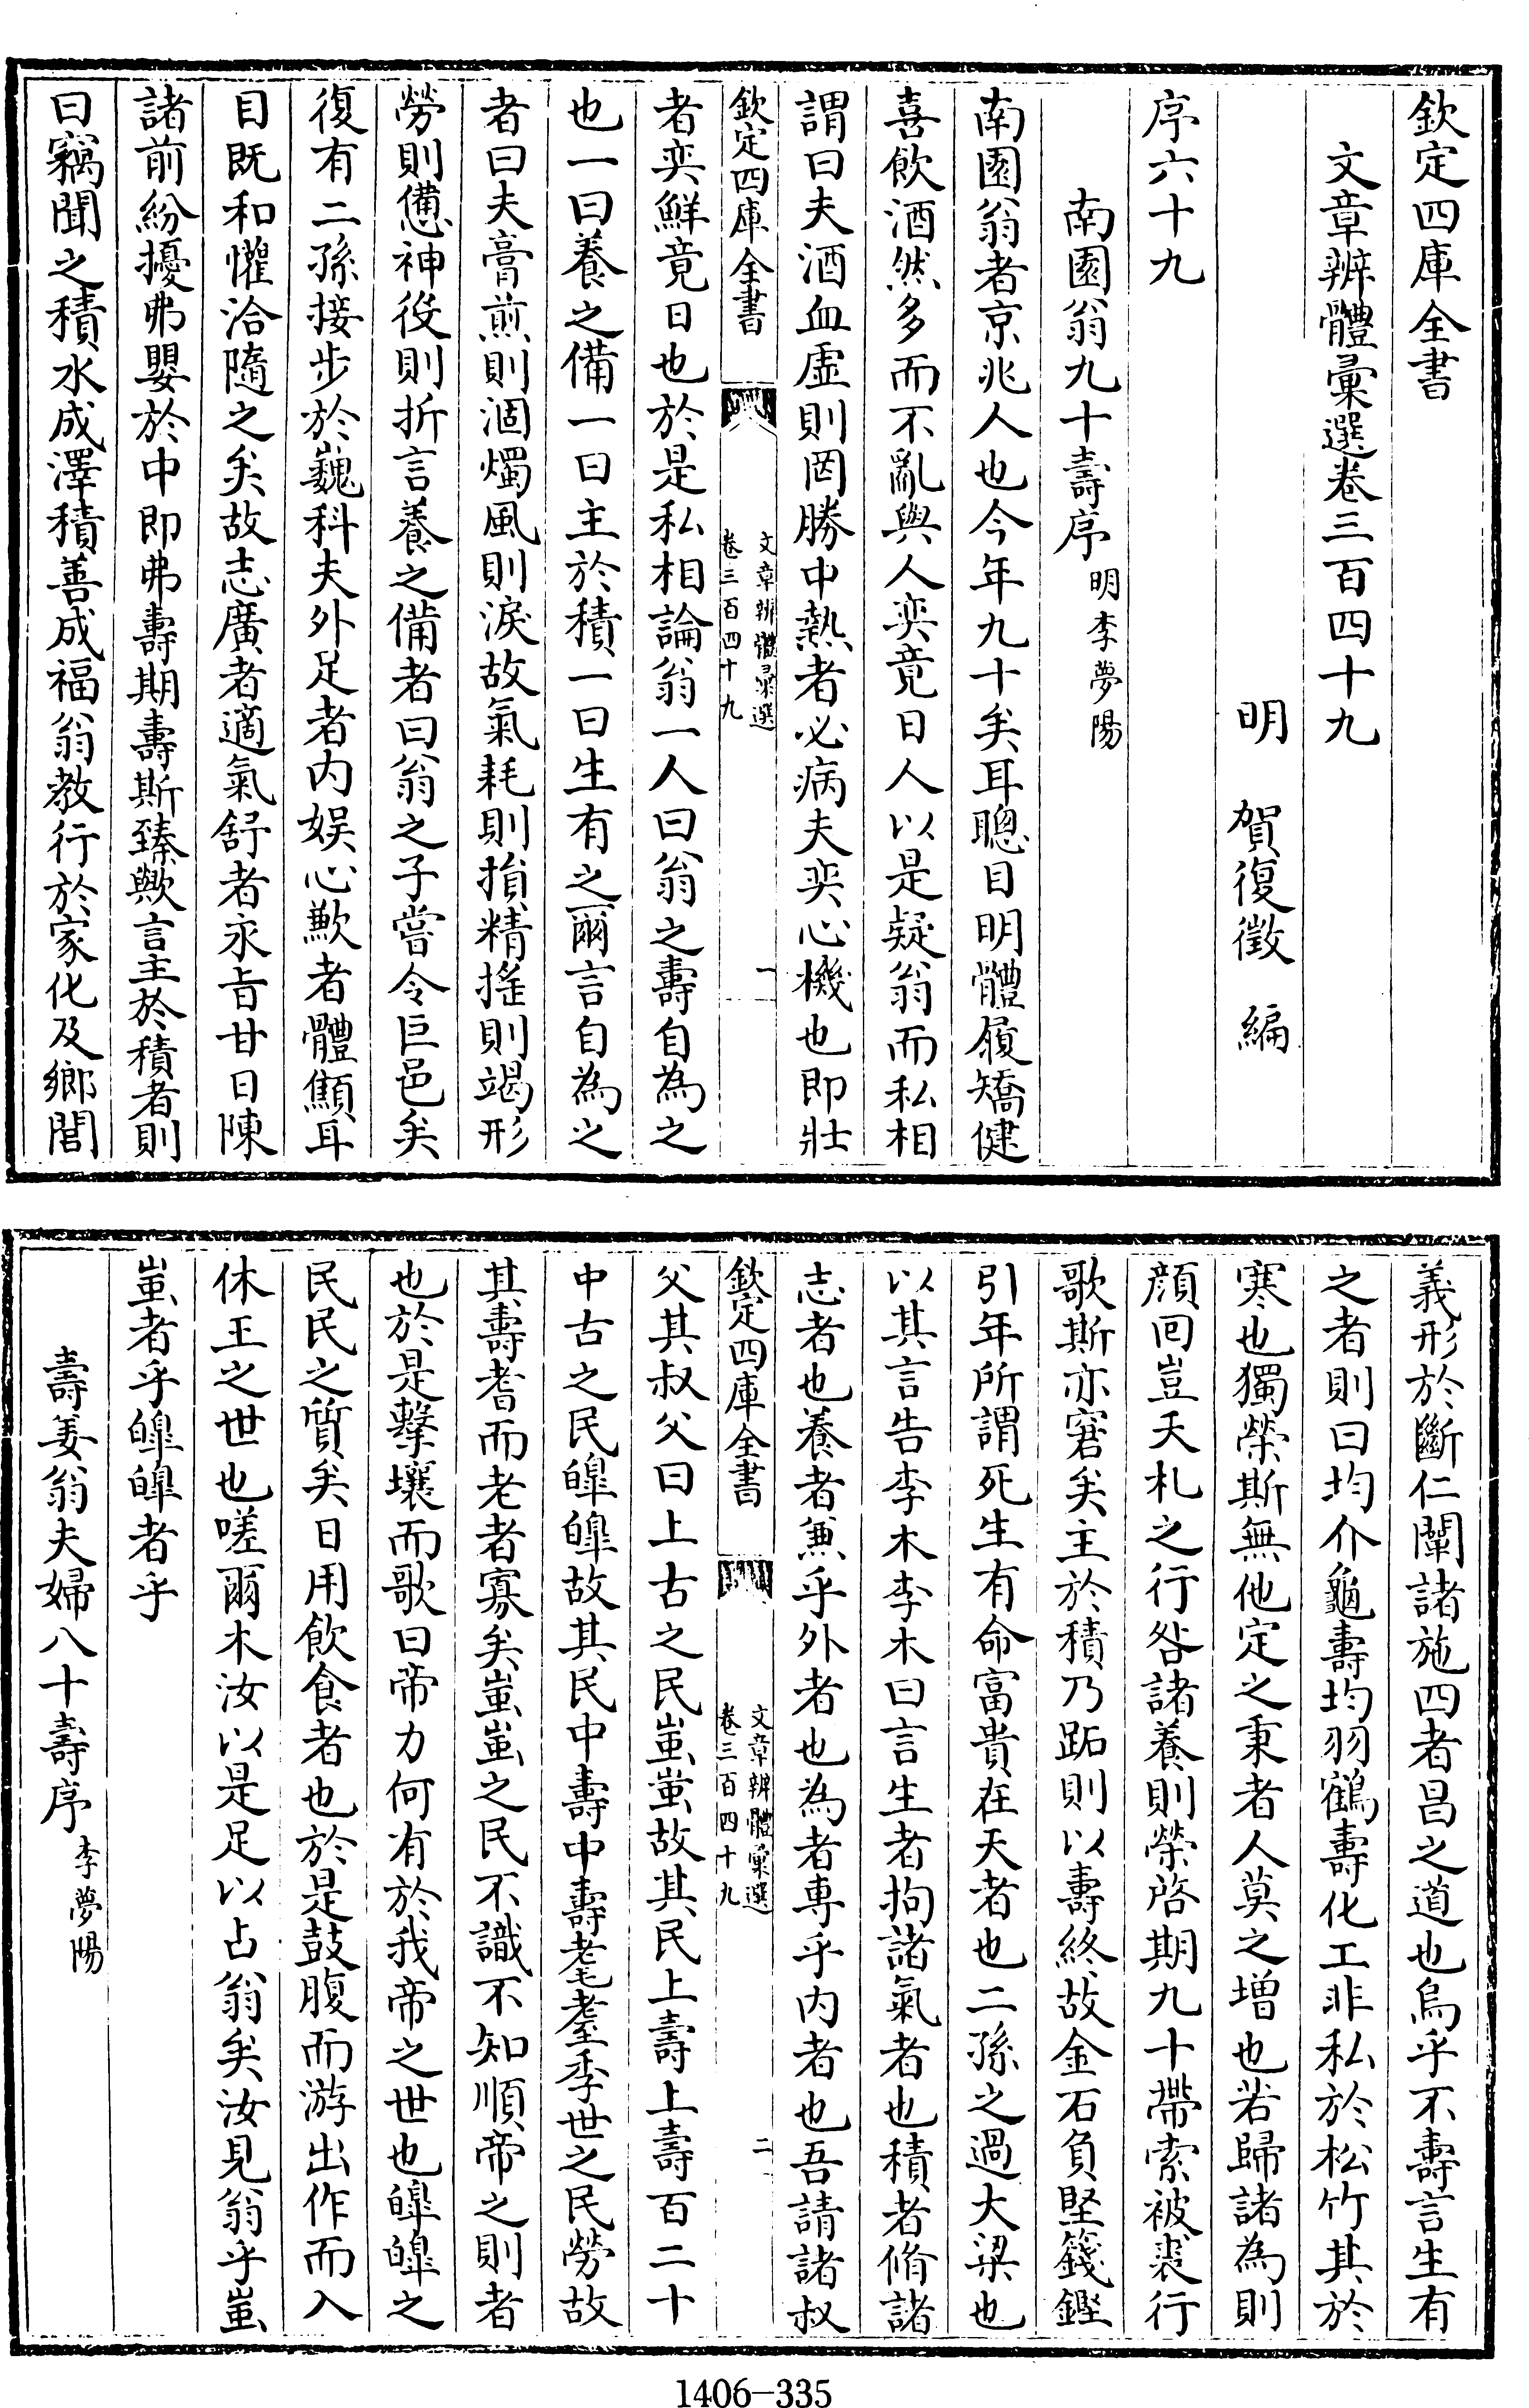 欽定四庫全書
文章辨體彚選卷三百四十九
明 賀復徵 編
序六十九
南園翁九十壽序明李夢陽
南園翁者京兆人也今年九十矣耳聰目明體履矯健
喜飲酒然多而不亂與人奕竟日人以是疑翁而私相
謂曰夫酒血虛則罔勝中熱者必病夫奕心機也即壯
欽定四庫全書
文章辨體彚選
卷三百四十九
一
者奕鮮竟日也於是私相論翁一人曰翁之壽自為之
也一曰養之備一曰主於積一曰生有之爾言自為之
者曰夫膏煎則涸燭風則淚故氣耗則損精搖則竭形
勞則憊神役則折言養之備者曰翁之子嘗令巨邑矣
復有二孫接步於巍科夫外足者內娱心歉者體顯耳
目既和懽洽隨之矣故志廣者適氣舒者永旨甘日陳
諸前紛擾弗嬰於中即弗壽期壽斯臻歟言主於積者則
曰竊聞之積水成澤積善成福翁教行於家化及鄉閭
義形於斷仁闡諸施四者昌之道也烏乎不壽言生有
之者則曰均介龜壽均羽鶴壽化工非私於松竹其於
寒也獨榮斯無他定之秉者人莫之增也若歸諸為則
顔回豈夭札之行咎諸養則榮啓期九十帶索被裘行
歌斯亦窘矣主於積乃跖則以壽終故金石負堅籛鏗
引年所謂死生有命富貴在天者也二孫之過大梁也
以其言告李木李木曰言生者拘諸氣者也積者脩諸
志者也養者兼乎外者也為者專乎內者也吾請諸叔
欽定四庫全書
文章辨體彚選
卷三百四十九
二
父其叔父曰上古之民蚩蚩故其民上壽上壽百二十
中古之民皥皥故其民中壽中壽耄耋季世之民勞故
其壽耆而老者寡矣蚩蚩之民不識不知順帝之則者
也於是擊壤而歌曰帝力何有於我帝之世也皥皥之
民民之質矣日用飲食者也於是鼓腹而游出作而入
休王之世也嗟爾木汝以是足以占翁矣汝見翁乎蚩
蚩者乎皥皥者乎
壽姜翁夫婦八十壽序李夢陽
1406-335